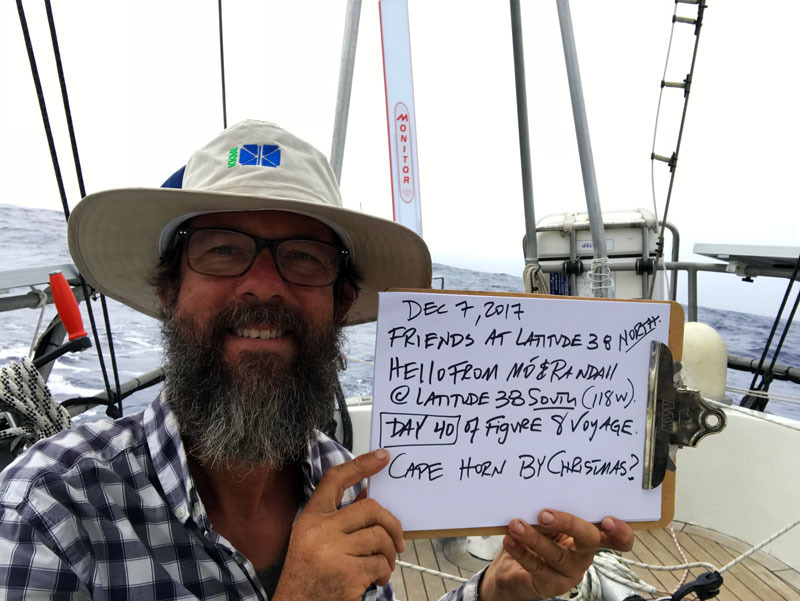 KKMI
MONITOR
DEC 7, 2017
FRIENDS AT LATITUDE 38 NORTH.
HELLO FROM MÓ & RANDALL
@ LATITUDE 38 SOUTH (118W).
DAY 40 OF FIGURE 8 VOYAGE.
CAPE HORN BY CHRISTMAS?